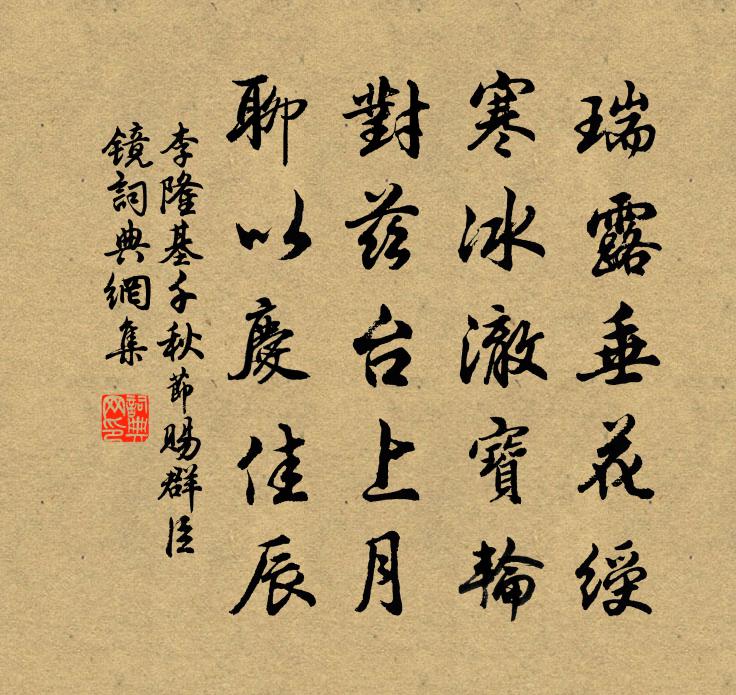 瑞露垂花綬
寒冰澈寶輪
對茲台上月
聊以慶佳辰
李隆基千秋節賜群臣
鏡詞典網集
詞典
网印